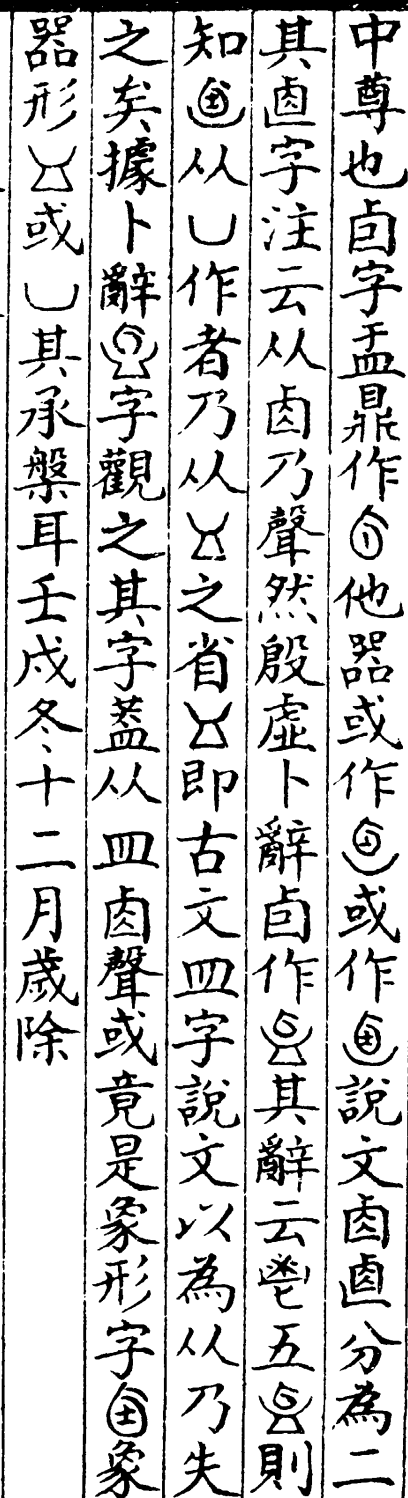 中尊也卣字盂鼎作他器或作或作說文卤逌分為二
其逌字注云从卤乃聲然殷虛卜辭卣作其辭云鬯五則
知从凵作者乃从之省即古文皿字說文以為从乃失
之矣據卜辭字觀之其字葢从皿卤聲或竟是象形字象
器形或凵其承槃耳壬戌冬十二月歲除